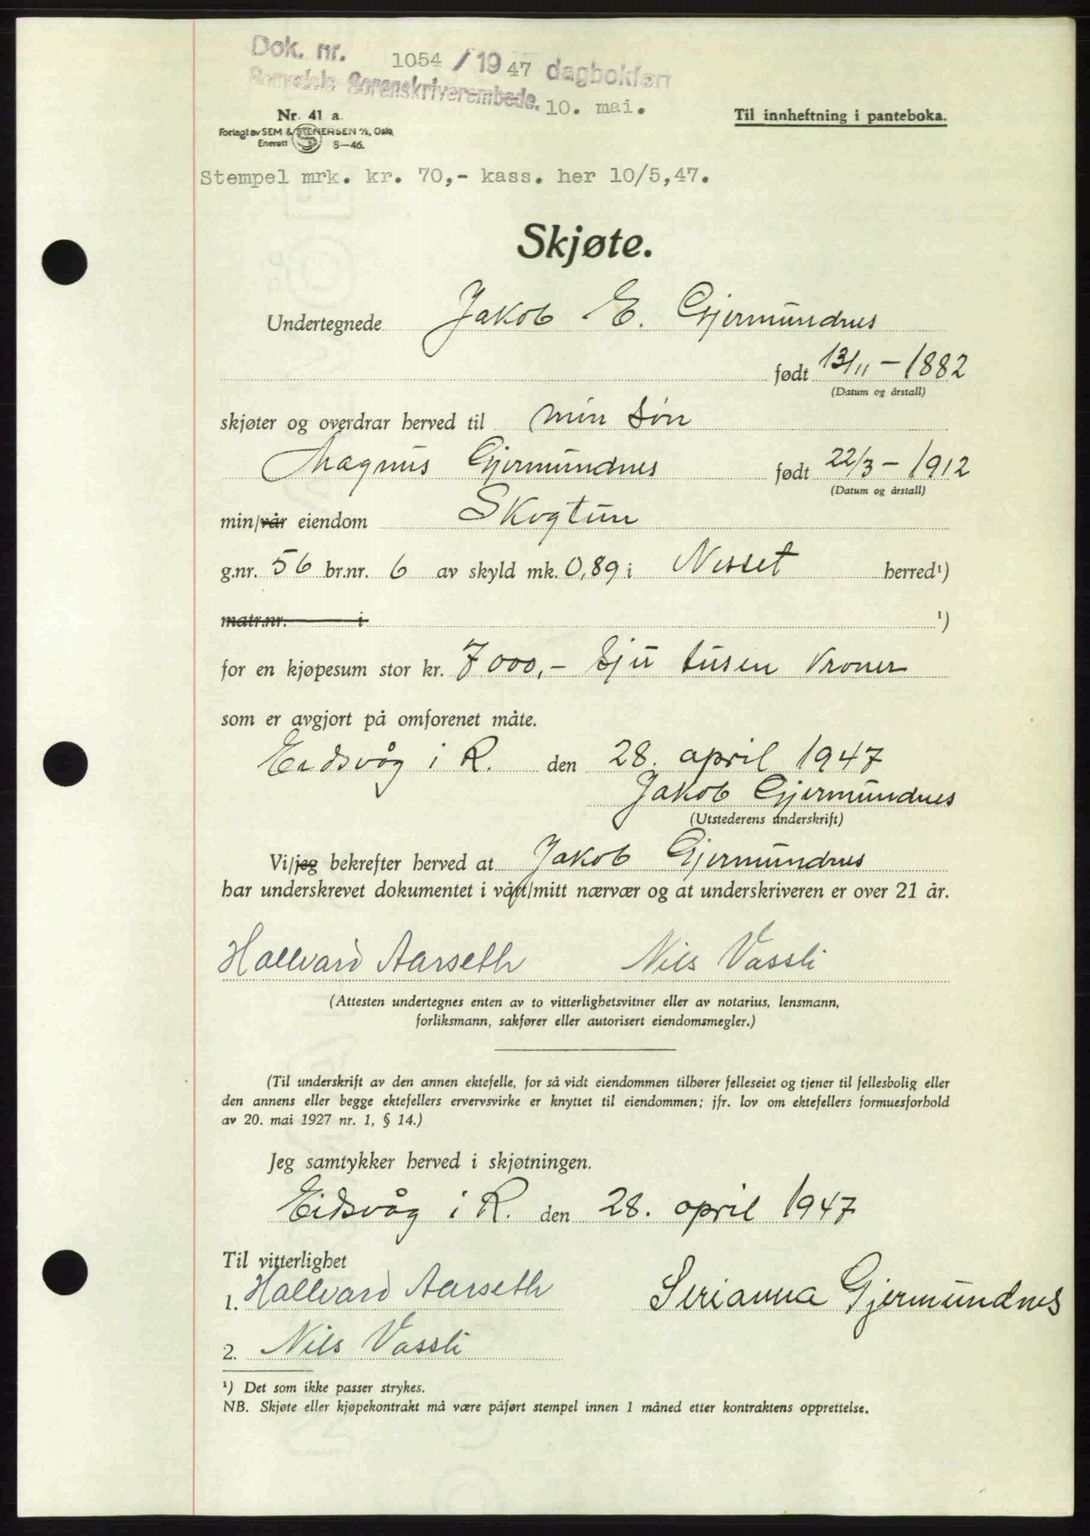 Dok. nr. 1054 / 19 47 dagbokført
Romsdals Sorenskriverembede. 10. mai.
Nr. 41 a.
Til innheftning i panteboka.
Forlagt av SEM & STENERSEN A/S, Oslo
Enerett 8-46.
Stempel mrk. kr. 70,- kass. her 10/5,47.
Skjøte.
Undertegnede Jakob E. Gjermundnes
født 13/11 - 1882
(Datum og årstall)
skjøter og overdrar herved til min søn
Magnus Gjermundnes født 22/3 - 1912
(Datum og årstall)
min/vår eiendom Skogtun
g.nr. 56 br.nr. 6 av skyld mk. 0,89 i Nesset herred¹)
matr.nr. i ¹)
for en kjøpesum stor kr. 7000,- sju tusen kroner
som er avgjort på omforenet måte.
Eidsvåg i R. den 28. april 1947
Jakob Gjermundnes
(Utstederens underskrift)
Vi/jeg bekrefter herved at Jakob Gjermundnes
har underskrevet dokumentet i vårt/mitt nærvær og at underskriveren er over 21 år.
Hallvard Aarseth Nils Vassli
(Attesten undertegnes enten av to vitterlighetsvitner eller av notarius, lensmann,
forliksmann, sakfører eller autorisert eiendomsmegler.)
(Til underskrift av den annen ektefelle, for så vidt eiendommen tilhører felleseiet og tjener til fellesbolig eller
den annens eller begge ektefellers ervervsvirke er knyttet til eiendommen; jfr. lov om ektefellers formuesforhold
av 20. mai 1927 nr. 1, § 14.)
Jeg samtykker herved i skjøtningen.
Eidsvåg i R. den 28. april 1947
Til vitterlighet
1. Hallvard Aarseth Serianna Gjermundnes
2. Nils Vassli
¹) Det som ikke passer strykes.
NB. Skjøte eller kjøpekontrakt må være påført stempel innen 1 måned etter kontraktens opprettelse.